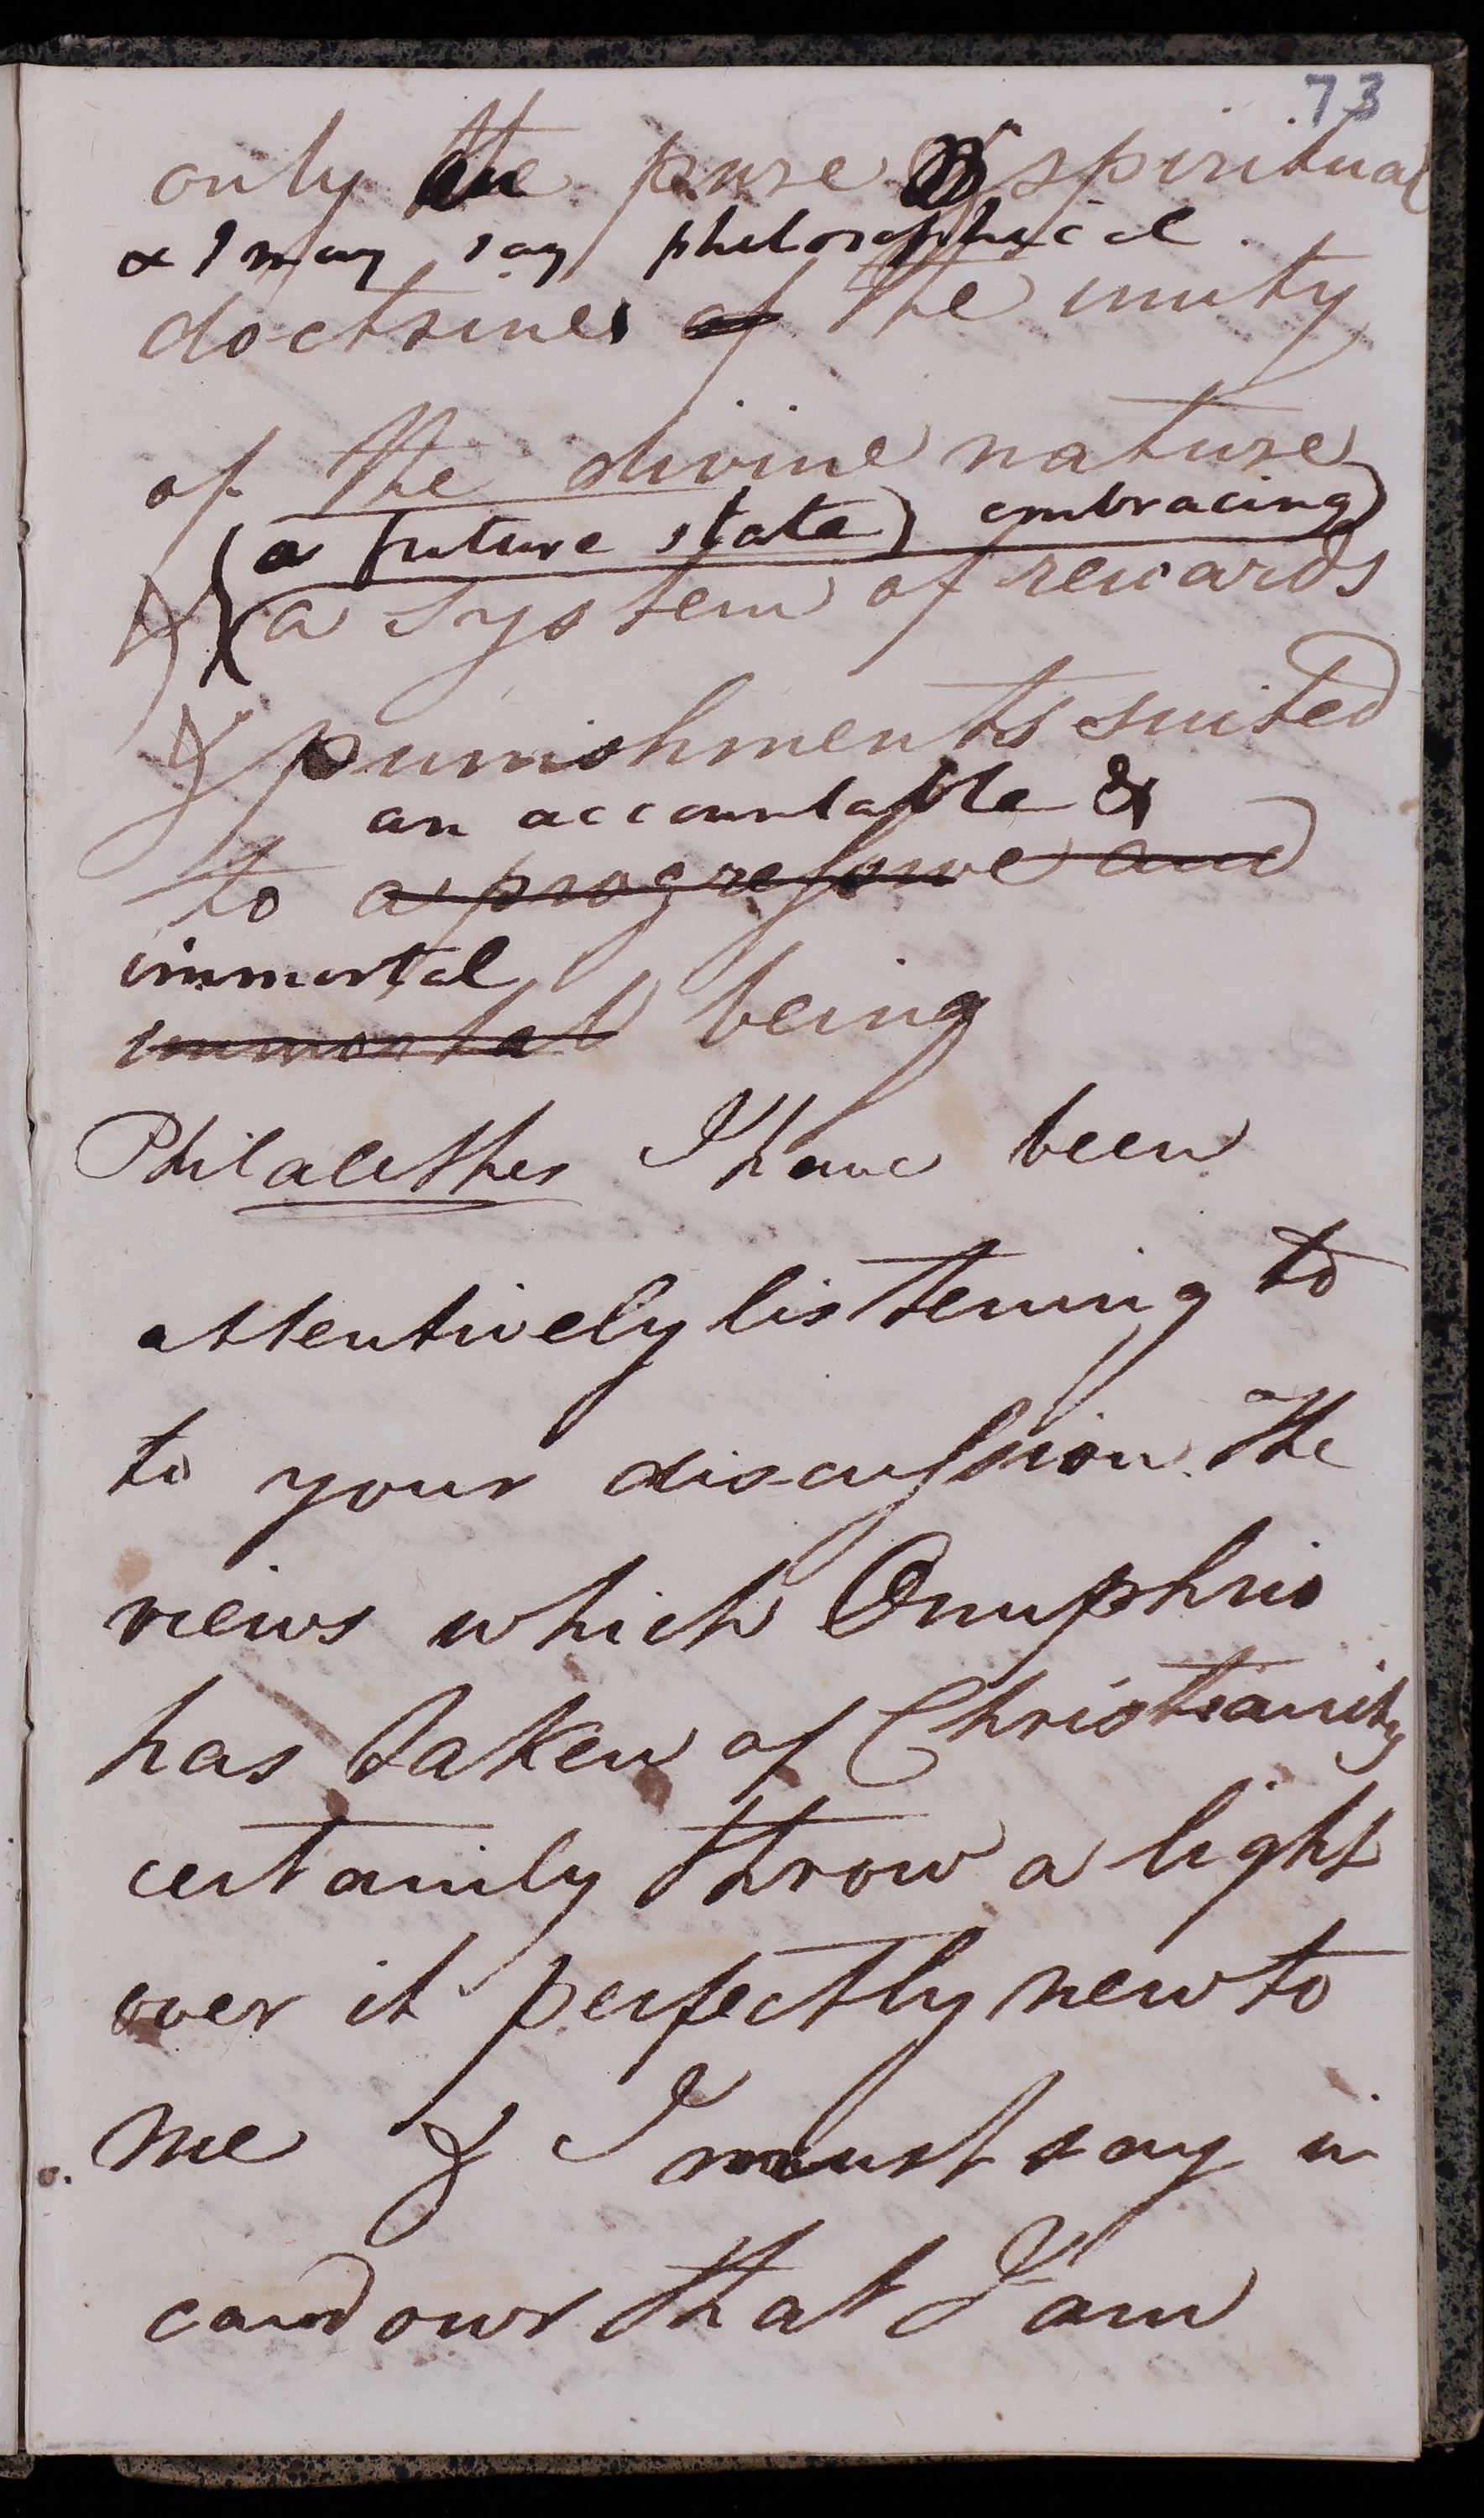 73
only the pure spiritual
& I may say philosophical
doctrines of the unity
of the divine nature
(a future state) embracing)
& (a system of rewards
& punishments suited
an accountable &
to a progressive and
immortal
immortal being
Philalethes I have been
attentively listening to
to your discussion. The
views which Onuphrio
has taken of Christianity
certainly throw a light
over it perfectly new to
me & I must say in
candour that I am